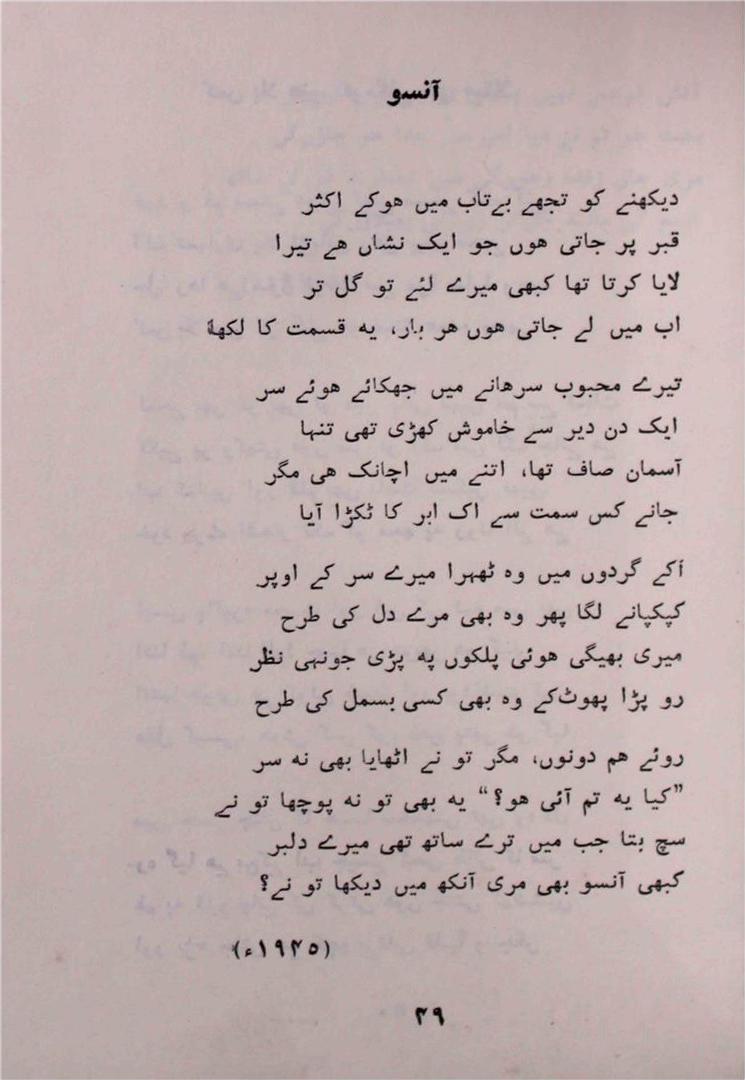 آنسو
دیکھنے کو تجھے بےتاب میں ھوکے اکثر
قبر پر جاتی ھوں جو ایک نشاں ھے تیرا
لایا کرتا تھا کبھی میرے لئے تو گل تر
اب میں لے جاتی ھوں ھر بار، یہ قسمت کا لکھا
تیرے محبوب سرھانے میں جھکائے ھوئے سر
ایک دن دیر سے خاموش کھڑی تھی تنہا
آسمان صاف تھا، اتنے میں اچانک ھی مگر
جانے کس سمت سے اک ابر کا ٹکڑا آیا
آکے گردوں میں وہ ٹھہرا میرے سر کے اوپر
کپکپانے لگا پھر وہ بھی مرے دل کی طرح
میری بھیگی ھوئی پلکوں پہ پڑی جونہی نظر
رو پڑا پھوٹ کے وہ بھی کسی بسمل کی طرح
روئے ھم دونوں، مگر تو نے اٹھایا بھی نہ سر
”کیا یہ تم آئی ھو؟“ یہ بھی تو نہ پوچھا تو نے
سچ بتا جب میں ترے ساتھ تھی میرے دلبر
کبھی آنسو بھی مری آنکھ میں دیکھا تو نے؟
(۱۹۴۵ء)
۴۹